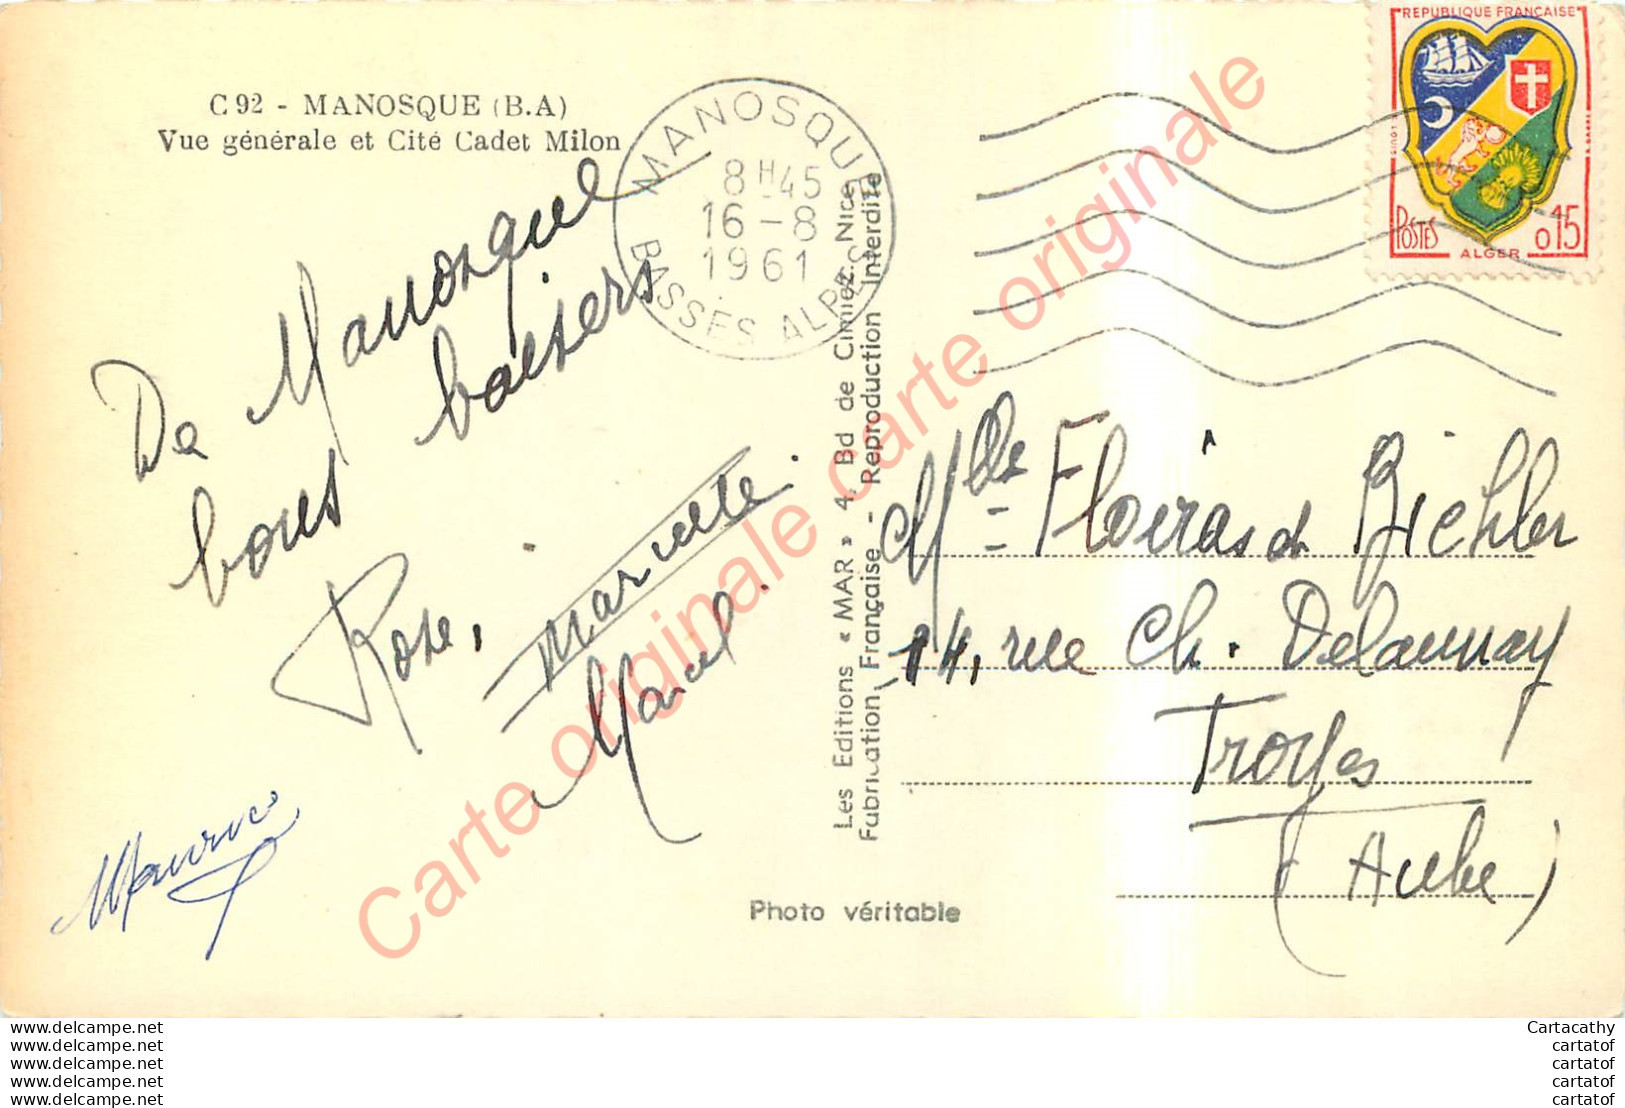 C 92 - MANOSQUE (B.A)
Vue générale et Cité Cadet Milon
MANOSQUE
8H45
16-8
1961
BASSES ALPES
REPUBLIQUE FRANÇAISE
POSTES
ALGER
0 15
De Manosque
bons baisers
Rose, Mariette.
Marcel.
Maurice
Les Editions « MAR » 4, Bd de Cimiez. Nice
Fabrication Française - Reproduction Interdite
Mlle Floiras d
14, rue Ch. Delaunay
Troyes
(Aube)
Photo véritable
Carte originale carte originale carte originale
www.delcampe.net
www.delcampe.net
www.delcampe.net
www.delcampe.net
www.delcampe.net
Cartacathy
cartatof
cartatof
cartatof
cartatof